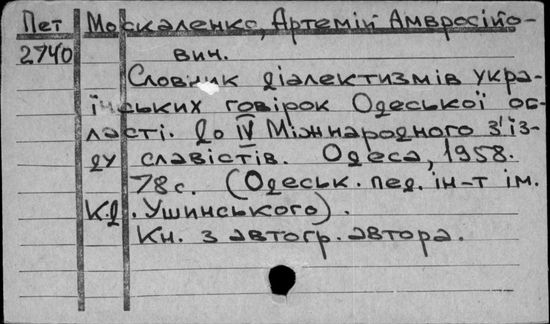 Пет Москаленко, Артемій Амвросійо-
2740 вич.
Словник діалектизмів укра-
їнських говірок Одеської об-
ласті. До IV Міжнародного з'їз-
ду славістів. Одеса, 1958.
78 с. (Одеськ. пед. ін-т ім.
К.Д. Ушинського).
Кн. з автогр. автора.